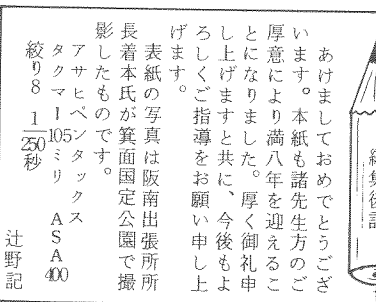 編集後記
あけましておめでとうござ
います。本紙も諸先生方のご
厚意により満八年を迎えるこ
とになりました。厚く御礼申
し上げますと共に、今後もよ
ろしくご指導をお願い申し上
げます。
表紙の写真は阪南出張所所
長着本氏が箕面国定公園で撮
影したものです。
アサヒペンタックス
タクマー105ミリ ASA400
絞り8 1/250秒
辻野記